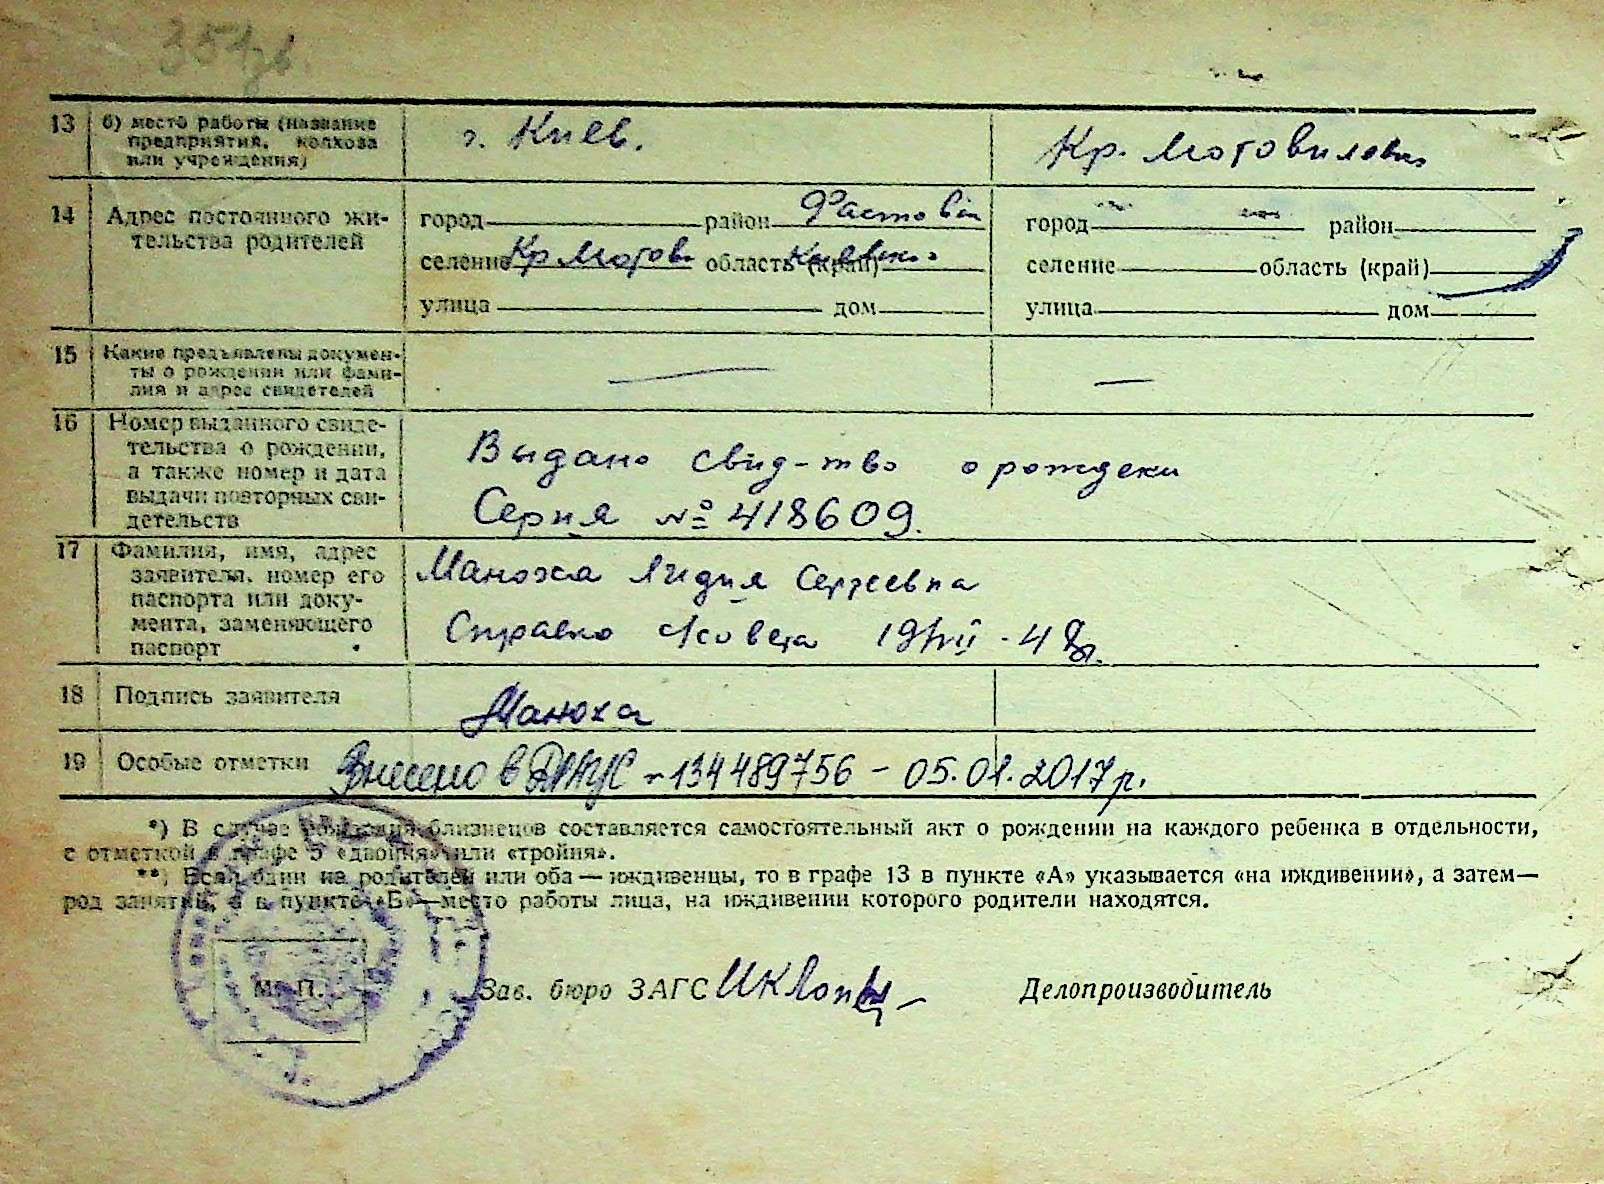 354
13 б) место работы (название
предприятия, колхоза
или учреждения)
г. Киев.
Кр. Мотовиловка
14 Адрес постоянного жи-
тельства родителей
город район Фастов
селение Кр Мотов. область (край) Киевск
улица дом
город район
селение область (край)
улица дом
15 Какие предъявлены докумен-
ты о рождении или фами-
лия и адрес свидетелей
16 Номер выданного свиде-
тельства о рождении,
а также номер и дата
выдачи повторных сви-
детельств
Выдано свид-тво о рождени
Серия № 418609.
17 Фамилия, имя, адрес
заявителя, номер его
паспорта или доку-
мента, заменяющего
паспорт
Маноха Лидия Сергеевна
Справка с/совета
18 Подпись заявителя
Маноха
19 Особые отметки Внесено в ДРАЦС - 134489756 - 05.01.2017 р.
*) В случае рождения близнецов составляется самостоятельный акт о рождении на каждого ребенка в отдельности,
с отметкой в графе 5 «двойня» или «тройня».
**) Если один из родителей или оба — иждивенцы, то в графе 13 в пункте «А» указывается «на иждивении», а затем—
род занятий, а в пункте «Б»—место работы лица, на иждивении которого родители находятся.
М. П.
Зав. бюро ЗАГС
Делопроизводитель